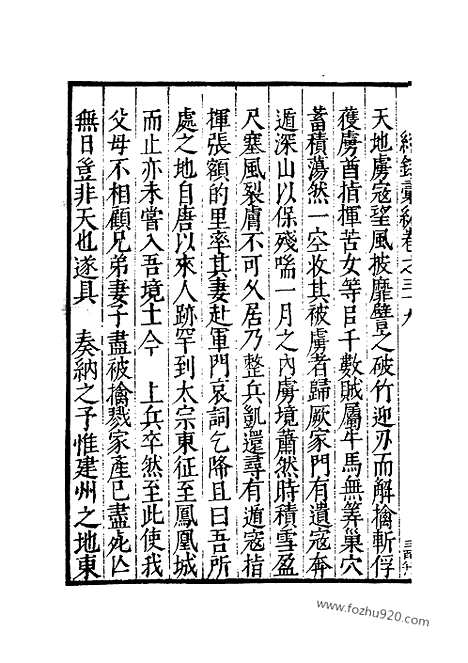 紀錄彙編卷之三十九
天地虜寇望風披靡譬之破竹迎刃而解擒斬俘
獲虜酋指揮苦女等㠯千數賊屬牛馬無筭巢穴
蓄積蕩然一空收其被虜者歸厥家門有遺寇奔
遁深山以保殘喘一月之內虜境蕭然時積雪盈
尺塞風裂膚不可久居乃整兵凱還尋有遁寇指
揮張額的里率其妻赴軍門哀詞乞降且曰吾所
處之地自唐以來人跡罕到太宗東征至鳳凰城
而止亦未嘗入吾境土今 上兵卒然至此使我
父母不相顧兄弟妻子盡被擒戮家產已盡死亾
無日豈非天也遂具 奏納之予惟建州之地東
www.fozhu920.com